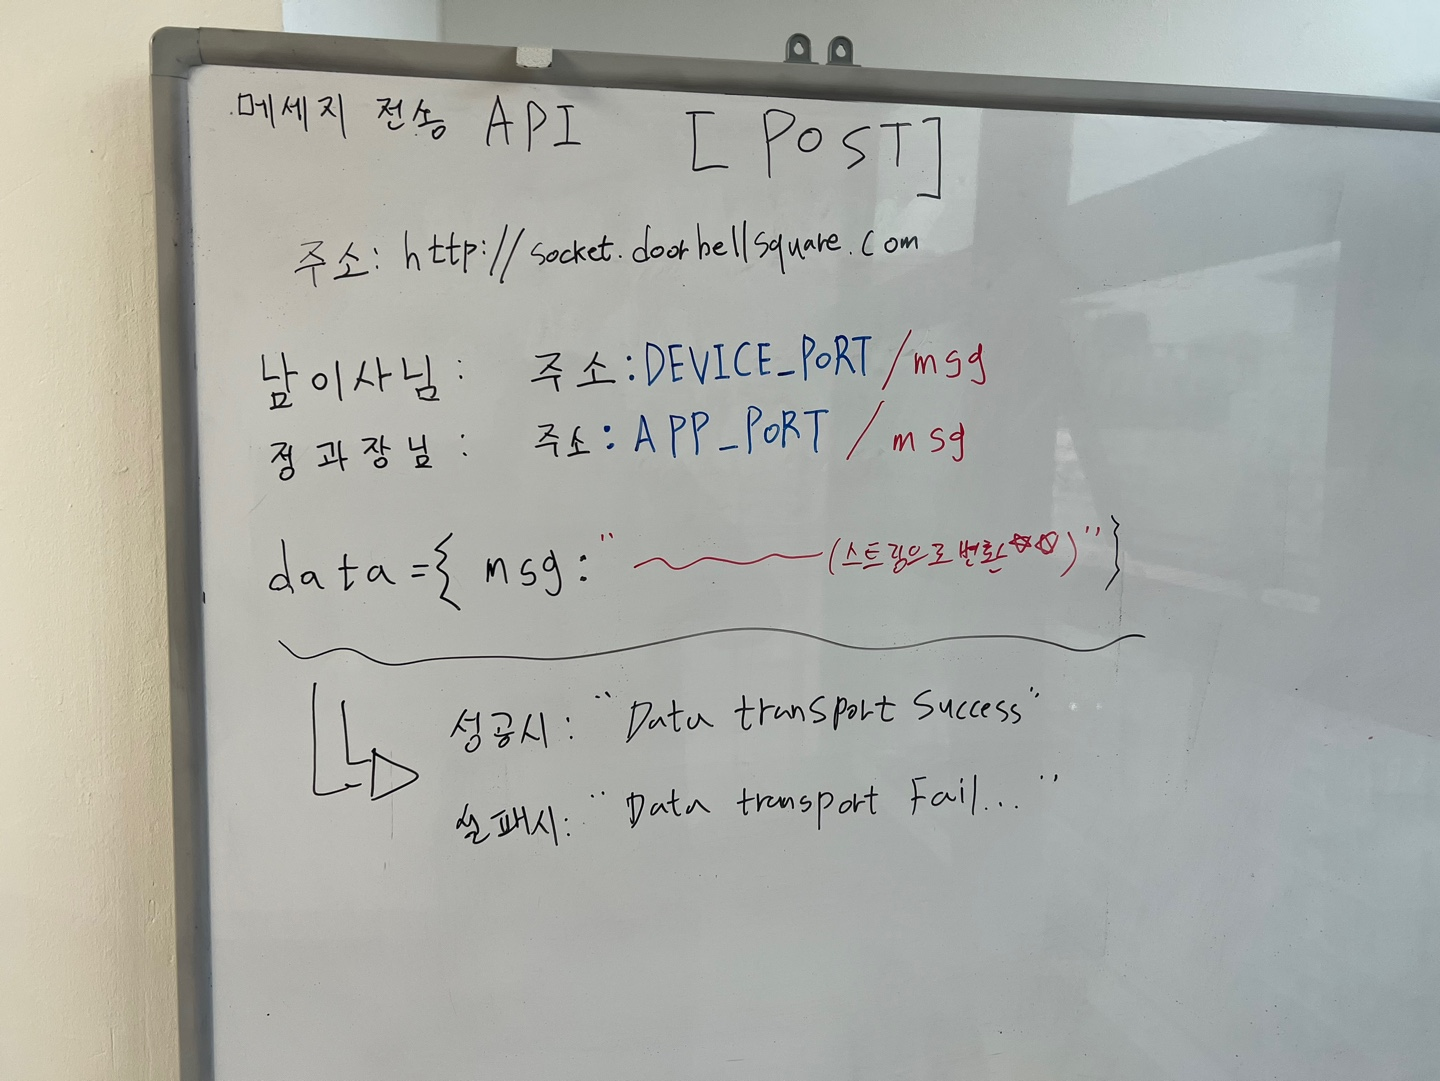 메세지 전송 API [POST]
주소: http://socket.doorbellsquare.com
남이사님: 주소:DEVICE_PORT/msg
정과장님: 주소:APP_PORT/msg
data={ msg:" (스트링으로 변환☆☆)"}
성공시: "Data transport Success"
실패시: "Data transport Fail..."